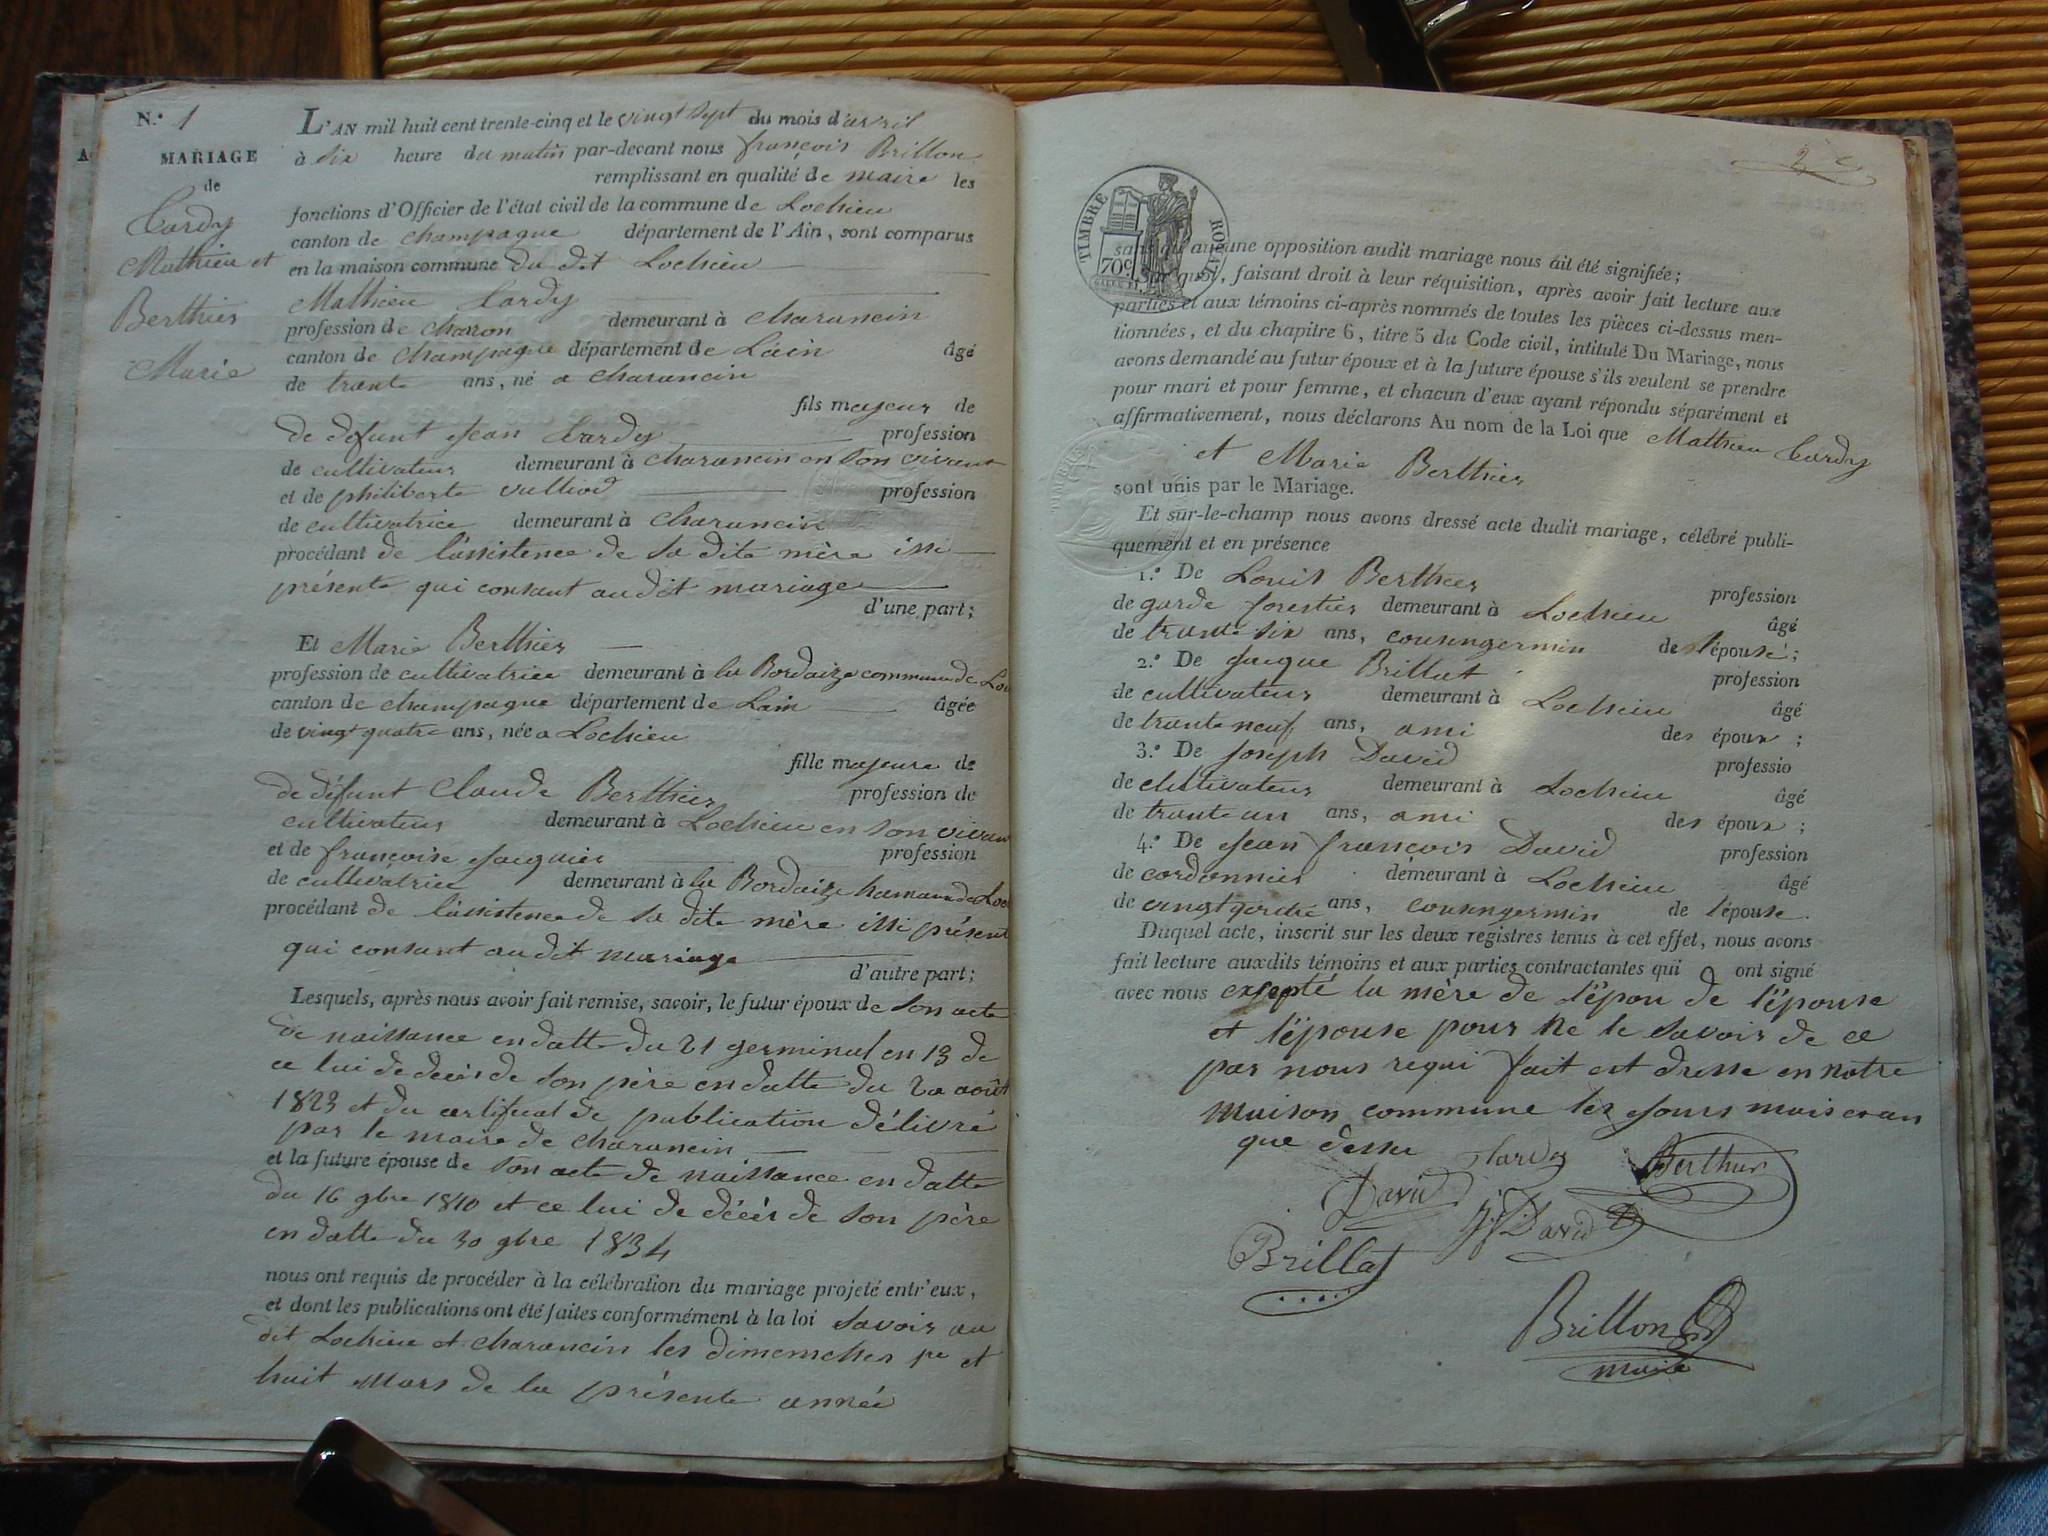 N.º 1
MARIAGE
de
Cardy
Mathieu et
Berthier
Marie
L'AN mil huit cent trente-cinq et le vingt sept du mois d'avril
à six heure du matin par-devant nous françois Brillon
remplissant en qualité de maire les
fonctions d'Officier de l'état civil de la commune de Lochieu
canton de champagne département de l'Ain, sont comparus
en la maison commune du dit Lochieu
Mathieu Cardy
profession de charon demeurant à charancin
canton de champagne département de Lain âgé
de trante ans, né a charancin
fils majeur de
de défunt Jean Cardy profession
de cultivateur demeurant à charancin en son vivant
et de philiberte vulliod profession
de cultivatrice demeurant à charancin
procédant de l'assistence de sa dite mère issi
présente qui consant audit mariage
d'une part;
Et Marie Berthier
profession de cultivatrice demeurant à la Bordaize commune de Lo
canton de champagne département de Lain âgée
de vingt quatre ans, née a Lochieu
fille majeure de
de défunt Claude Berthier profession de
cultivateur demeurant à Lochieu en son vivan
et de françoise Jacquier profession
de cultivatrice demeurant à la Bordaize hamau de Loc
procédant de l'assistence de sa dite mère issi présent
qui consant audit mariage
d'autre part;
Lesquels, après nous avoir fait remise, savoir, le futur époux de son acte
de naissance en datte du 21 germinal en 13 de
ce lui de décès de son père en datte du 20 août
1823 et du certificat de publication délivré
par le maire de charancin
et la future épouse de son acte de naissance en datte
du 16 gbre 1810 et ce lui de décès de son père
en datte du 30 gbre 1834
nous ont requis de procéder à la célébration du mariage projeté entr'eux,
et dont les publications ont été faites conformément à la loi savoir au
dit Lochieu et charancin les dimenches pr et
huit Mars de la présente année
2
TIMBRE ROYAL
70c
sans qu'aucune opposition audit mariage nous ait été signifiée;
quoi, faisant droit à leur réquisition, après avoir fait lecture aux
parties et aux témoins ci-après nommés de toutes les pièces ci-dessus men-
tionnées, et du chapitre 6, titre 5 du Code civil, intitulé Du Mariage, nous
avons demandé au futur époux et à la future épouse s'ils veulent se prendre
pour mari et pour femme, et chacun d'eux ayant répondu séparément et
affirmativement, nous déclarons Au nom de la Loi que Mathieu Cardy
et Marie Berthier
sont unis par le Mariage.
Et sur-le-champ nous avons dressé acte dudit mariage, célébré publi-
quement et en présence
1.º De Louis Berthier profession
de garde forestier demeurant à Lochieu âgé
de trante six ans, cousngermin de l'épouse;
2.º De Jacque Brillat profession
de cultivateur demeurant à Lochieu âgé
de trante neuf ans, ami des époux;
3.º De Joseph David professio
de cultivateur demeurant à Lochieu âgé
de trante un ans, ami des époux;
4.º De Jean françois David profession
de cordonnier demeurant à Lochieu âgé
de vingt ans, cousngermin de l'épouse.
Duquel acte, inscrit sur les deux registres tenus à cet effet, nous avons
fait lecture auxdits témoins et aux parties contractantes qui ont signé
avec nous excepté la mère de l'épou de l'épouse
et l'épouse pour ne le savoir de ce
par nous requi fait est dresse en notre
maison commune les jours mois et an
que dessu Cardy Berthier
David J.f. David
Brillat
Brillon
maire